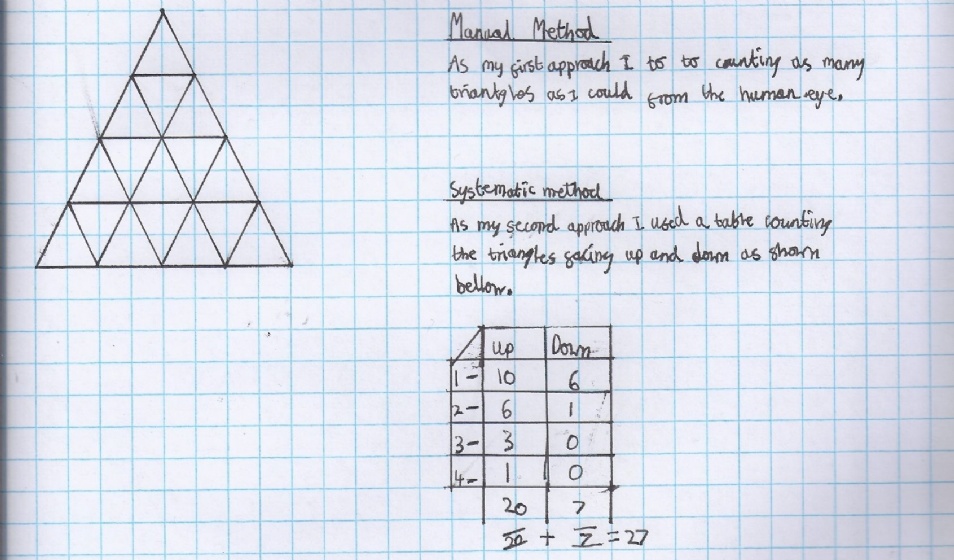 Manual Method
As my first approach I to to counting as many
triantglos as I could from the human eye.
Systematic method
As my second approach I used a table counting
the triangles facing up and down as shown
bellow.
up Down
1- 10 6
2- 6 1
3- 3 0
4- 1 0
20 7
20 + 7 = 27